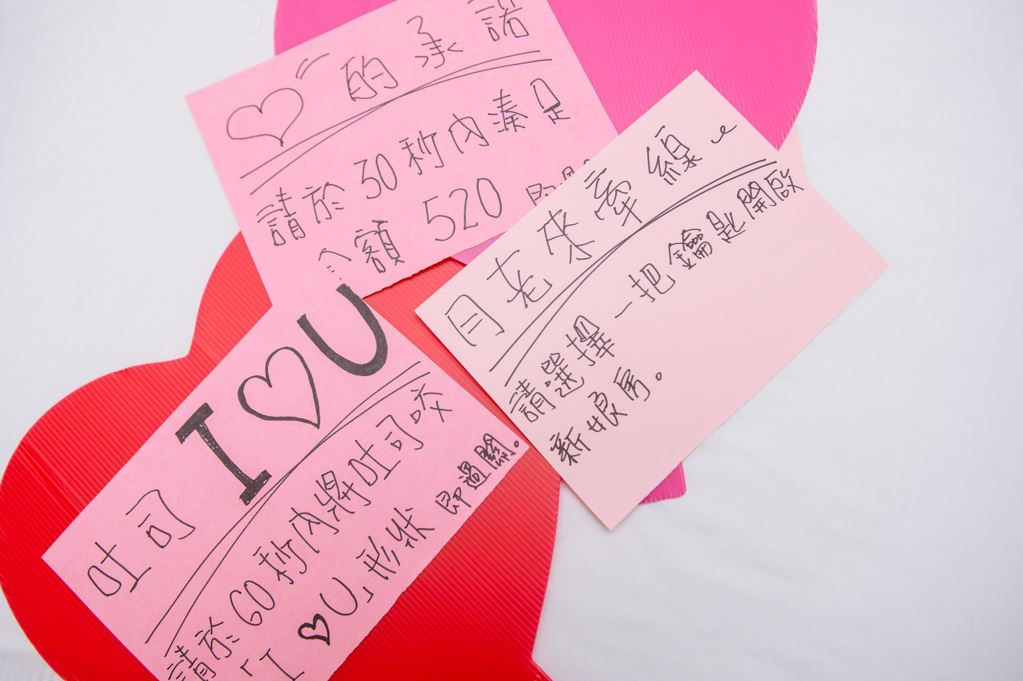 ♡的承諾
請於30秒內湊足
金額520
月老來牽線
請選擇一把鑰匙開啟
新娘房。
吐司 I♡U
請於60秒內將吐司咬
「I♡U」形狀即過關。